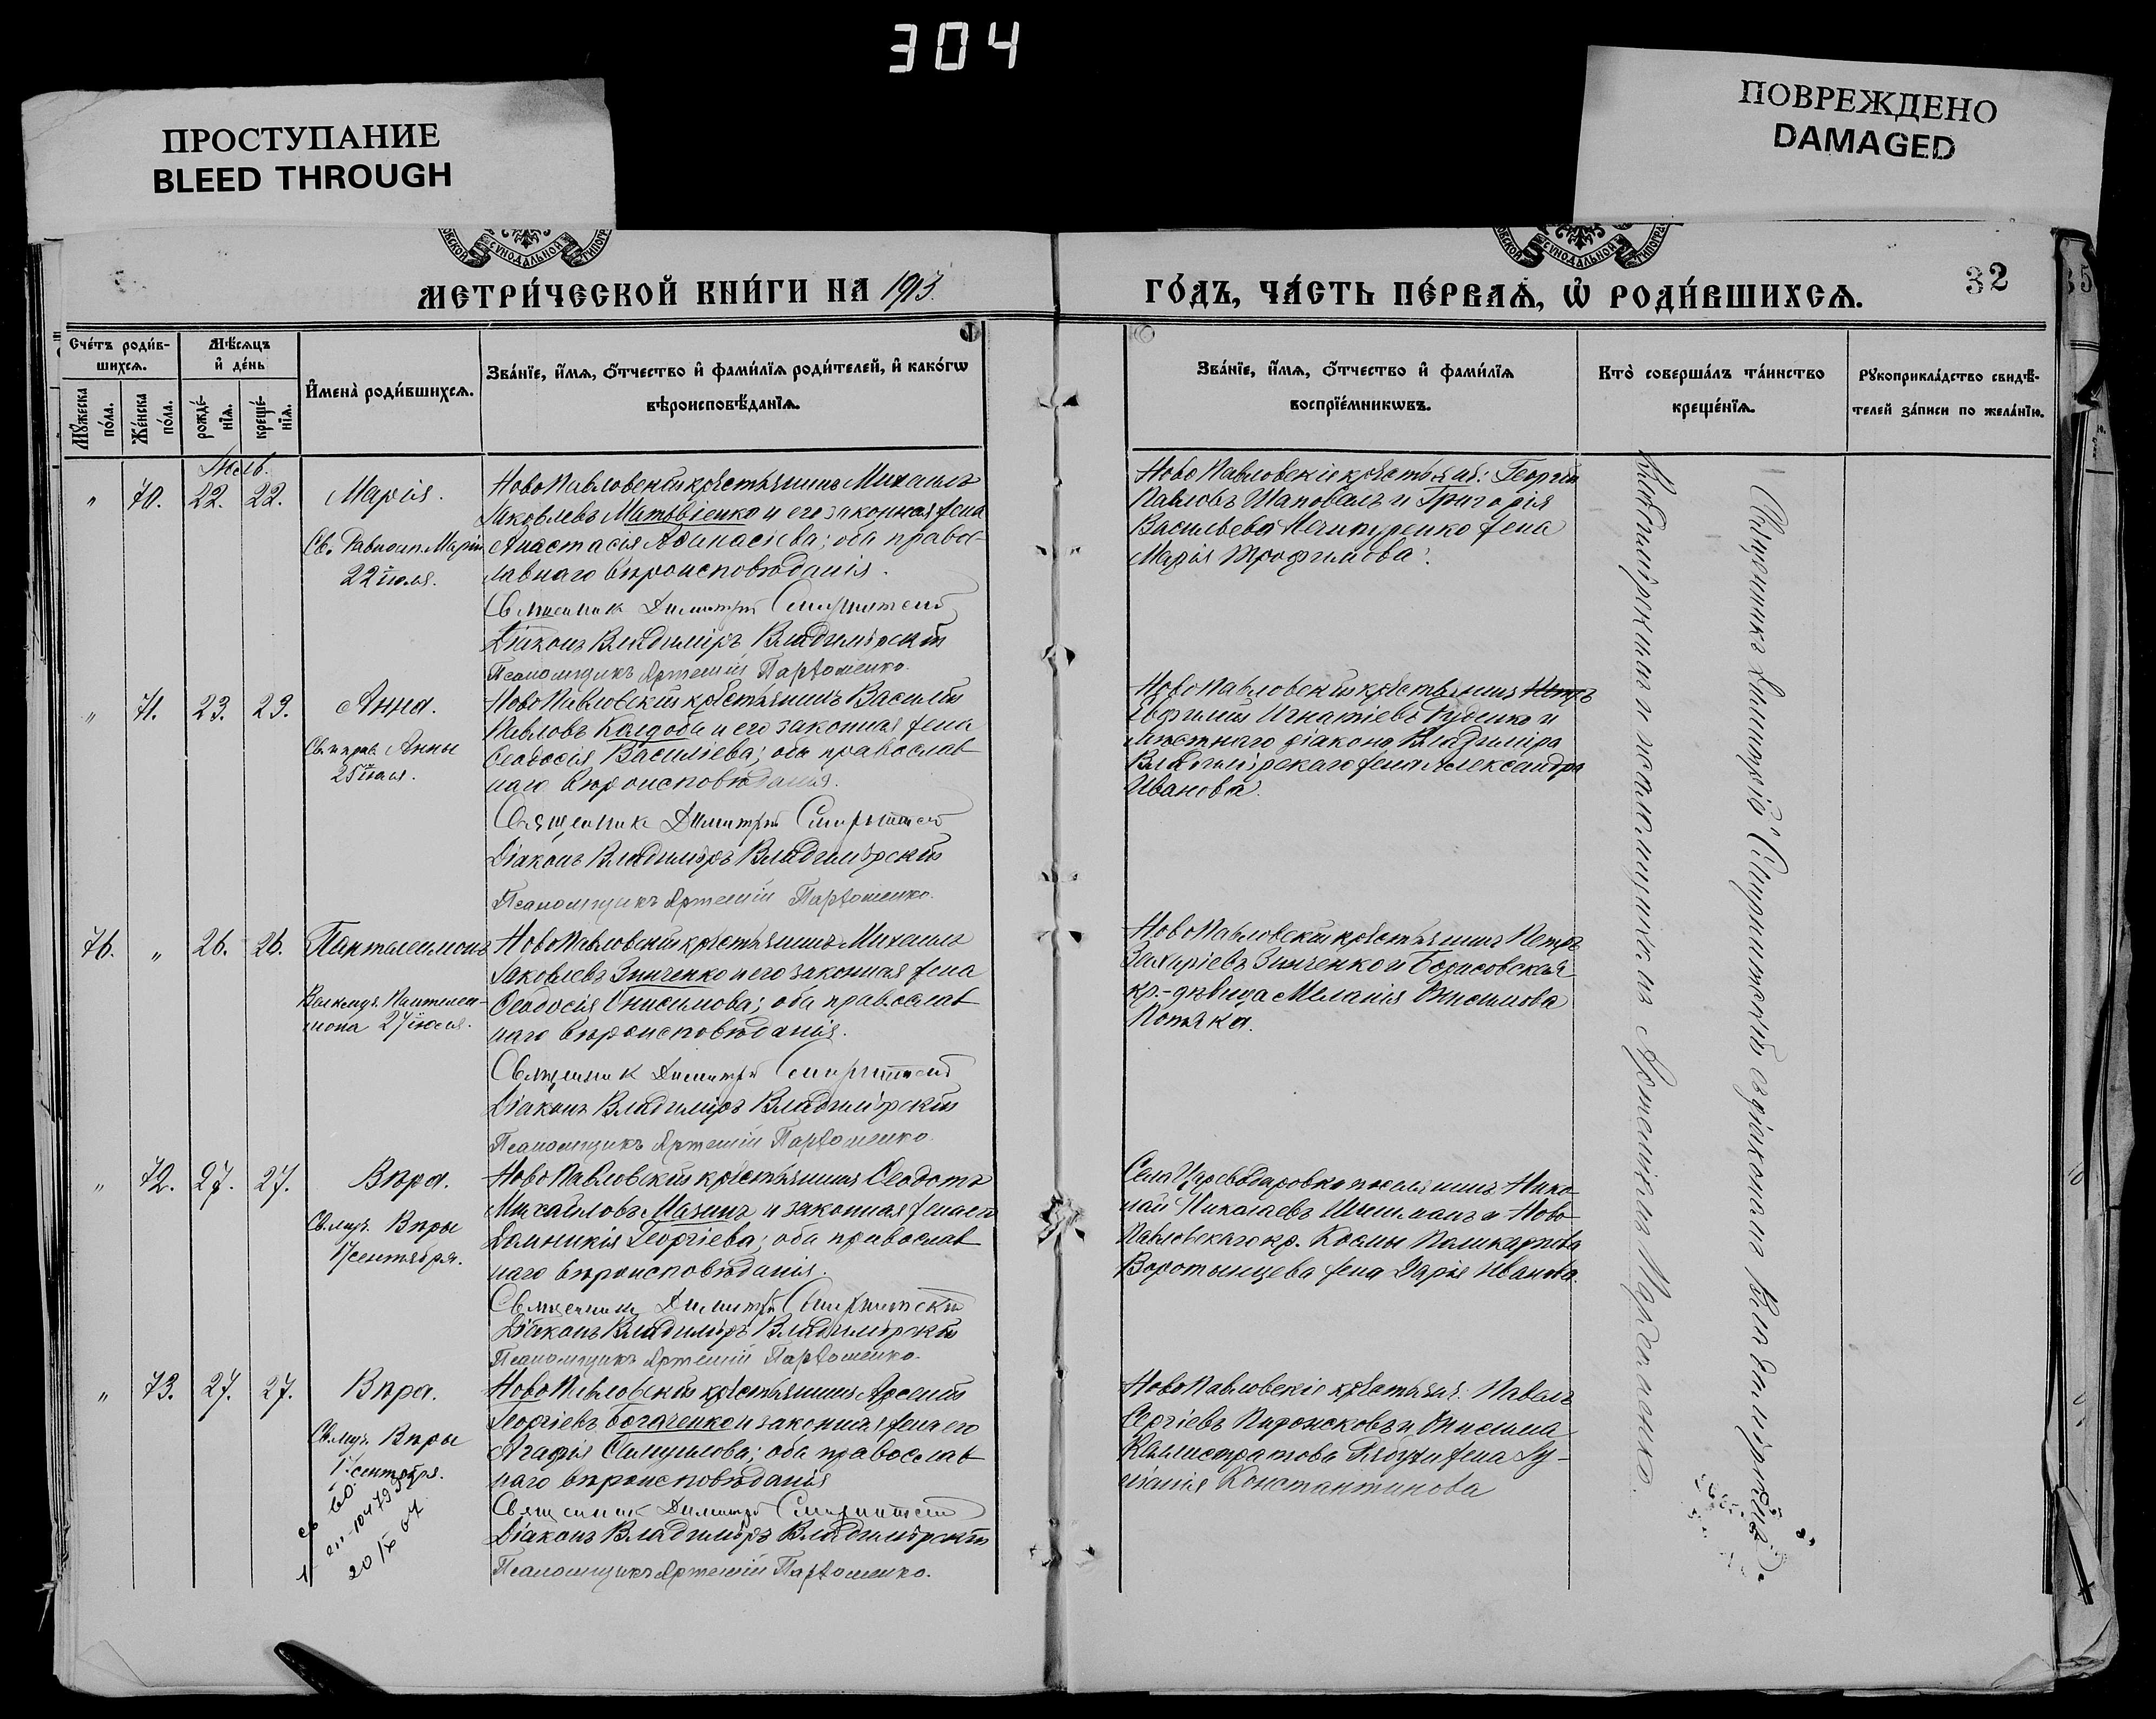 304
ПРОСТУПАНИЕ
BLEED THROUGH
ПОВРЕЖДЕНО
DAMAGED
МЕТРИ́ЧЕСКОЙ КНИ́ГИ НА 1913.
ГО́ДЪ, ЧА́СТЬ ПЕ́РВАѦ, Ѡ҆ РОДИ́ВШИХСѦ.
32
Счéтъ роди́в-
шихсѧ.
Мꙋ́жеска по́ла.
Же́нска по́ла.
Мѣ́сѧцъ
и҆ де́нь
рожде́-
нїѧ.
креще́-
нїѧ.
И҆мена̀ роди́вшихсѧ.
Зва́нїе, и҆́мѧ, ѻ҆́тчество и҆ фами́лїѧ роди́телей, и҆ како́гѡ
вѣроисповѣ́данїѧ.
Зва́нїе, и҆́мѧ, ѻ҆́тчество и҆ фами́лїѧ
воспрїе́мникѡвъ.
Кто̀ соверша́лъ та́инство
креще́нїѧ.
Рꙋкоприкла́дство свидѣ́-
телей за́писи по жела́нїю.
Іюль.
" 70. 22. 22. Марія.
Св. Равноап. Маріи
22 іюля.
НовоПавловскій крестьянинъ Михаилъ
Яковлевъ Матвіенко и его законная жена
Анастасія Аѳанасіева; оба правос-
лавнаго вѣроисповѣданія.
Священник Димитрій
Діаконъ Владиміръ Владимірскій
Псаломщикъ Артемій Парѳоменко.
НовоПавловскіе крестьяне: Георгій
Павловъ Шаповалъ и Григорія
Васильева Нечипуренко жена
Марія Трофимова.
" 71. 23. 23. Анна.
Св. прав. Анны
25 іюля.
НовоПавловскій крестьянинъ Василій
Павловъ Калдоба и его законная жена
Ѳеодосія Васильева; оба православ
наго вѣроисповѣданія.
Священник Димитрій
Діаконъ Владиміръ Владимірскій
Псаломщикъ Артемій Парѳоменко.
НовоПавловскій крестьянинъ
Игнатіевъ Руденко и
мѣстнаго діакона Владиміра
Владимірскаго жена Александра
Иванова.
76. " 26. 26. Пантелеимонъ
Великмуч. Пантелеи-
мона 27 іюля.
НовоПавловскій крестьянинъ Михаилъ
Яковлевъ Зинченко и его законная жена
Ѳеодосія Онисимова; оба православ
наго вѣроисповѣданія.
Священник Димитрій
Діаконъ Владиміръ Владимірскій
Псаломщикъ Артемій Парѳоменко.
НовоПавловскій крестьянинъ Петръ
Захаріевъ Зинченко и Борисовская
кр.-дѣвица Меланія Онисимова
" 72. 27. 27. Вѣра.
Св. муч. Вѣры
17 сентября.
НовоПавловскій крестьянинъ Ѳеодотъ
Михайловъ Мазинъ и законная жена его
Домникія Георгіева; оба православ
наго вѣроисповѣданія.
Священникъ Димитрій
Діаконъ Владиміръ Владимірскій
Псаломщикъ Артемій Парѳоменко.
Села Царедаровки поселянинъ Нико-
лай Николаевъ Шишманъ и Ново-
Павловскаго кр. Космы Поликарпова
Воротынцева жена Дарія Иванова.
" 73. 27. 27. Вѣра.
Св. муч. Вѣры
17 сентября.
НовоПавловскій крестьянинъ Арсеній
Георгіевъ Богаченко и законная жена его
Агафія Самуилова; оба православ
наго вѣроисповѣданія
Священник Димитрій
Діаконъ Владиміръ Владимірскій
Псаломщикъ Артемій Парѳоменко.
НовоПавловскіе крестьяне: Павелъ
Сергіевъ Пирожковъ и Онисима
Каллистратова жена Лу-
Константинова
Священникъ Димитрій съ діакономъ Владиміромъ
Владимірскимъ и псаломщикомъ Артеміемъ Парѳоменко.